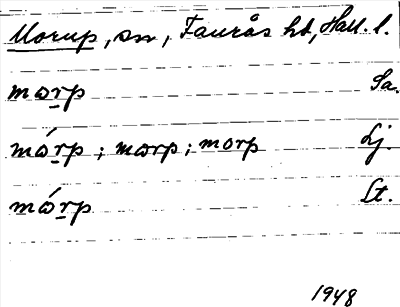 Morup, sn, Faurås hd, Hall. l.
mɷrp Sa.
mɷ́rp; mɷrp; morp Lj.
mɷ́rp Lt.
1948